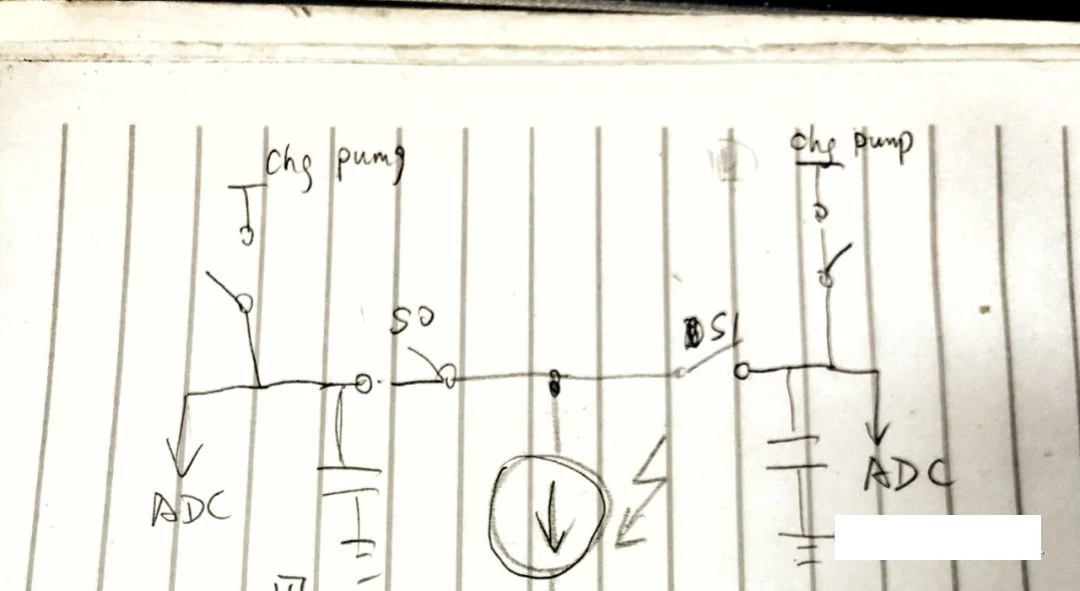 Chg pump
Chg pump
S0
S1
ADC
ADC